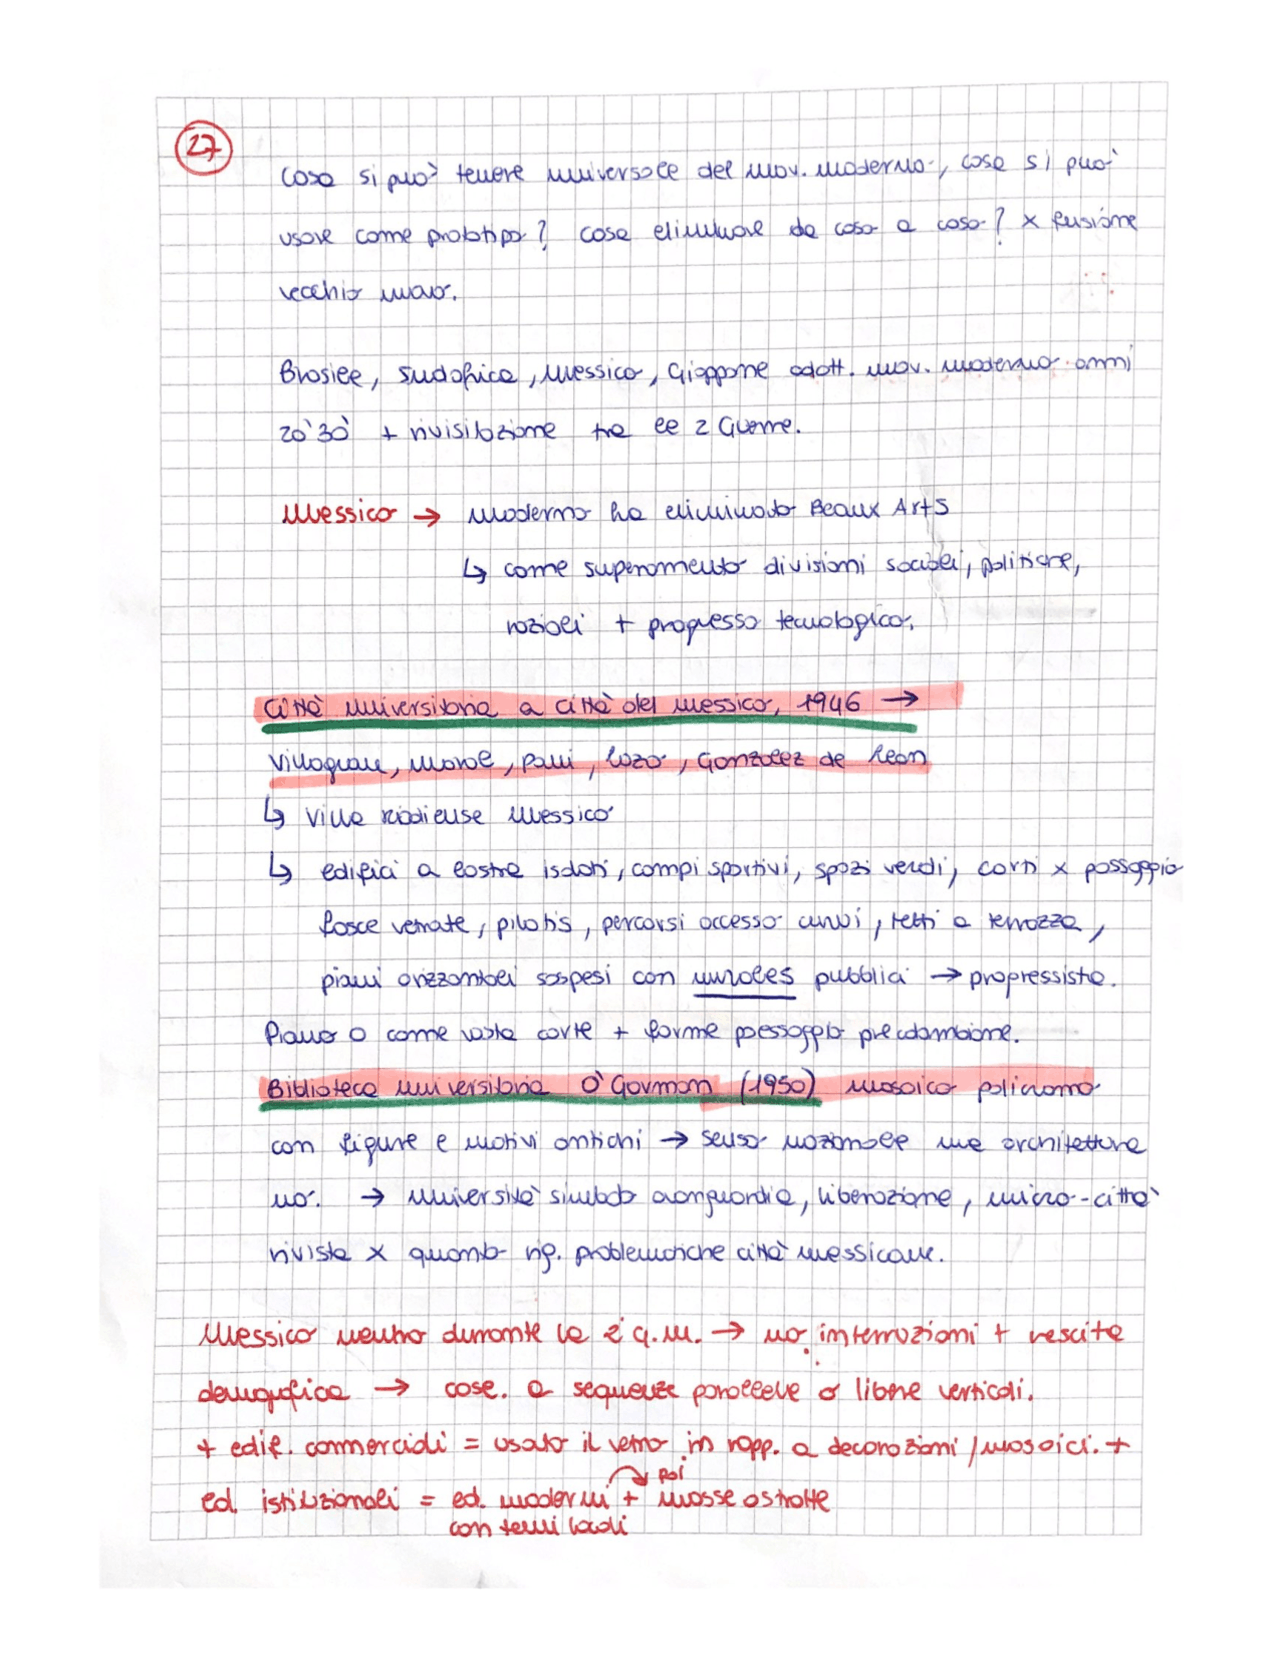 27
cosa si può tenere universale del mov. moderno, cosa si può
usare come prototipo? cosa eliminare da caso a caso? x fusione
vecchio nuovo.
Brasile, Sudafrica, Messico, Giappone adott. mov. moderno anni
20'30' + rivisitazione tra le 2 Guerre.
Messico → moderno ha eliminato Beaux Arts
↳ come superamento divisioni sociali, politiche,
razziali + progresso tecnologico.
Città universitaria a città del messico, 1946 →
Villagran, Moral, Pani, Lazo, Gonzalez de Leon
↳ Ville radieuse Messico
↳ edifici a lastra isolati, campi sportivi, spazi verdi, corti x passaggio
fasce vetrate, pilotis, percorsi accesso curvi, tetti a terrazza,
piani orizzontali sospesi con murales pubblici → progressista.
Piano 0 come vasta corte + forme paesaggio precolombiane.
Biblioteca universitaria O'Gorman (1950) mosaico policromo
con figure e motivi antichi → senso nazionale ma architettura
no. → università simbolo avanguardia, liberazione, micro-città
rivista x quanto rig. problematiche città messicane.
Messico neutro durante la 2ª g.m. → no interruzioni + crescita
demografica → case. a sequenze parallele o libere verticali.
+ edif. commerciali = usato il vetro in rapp. a decorazioni/mosaici. +
ed. istituzionali = ed. moderni + poi masse astratte
con temi locali